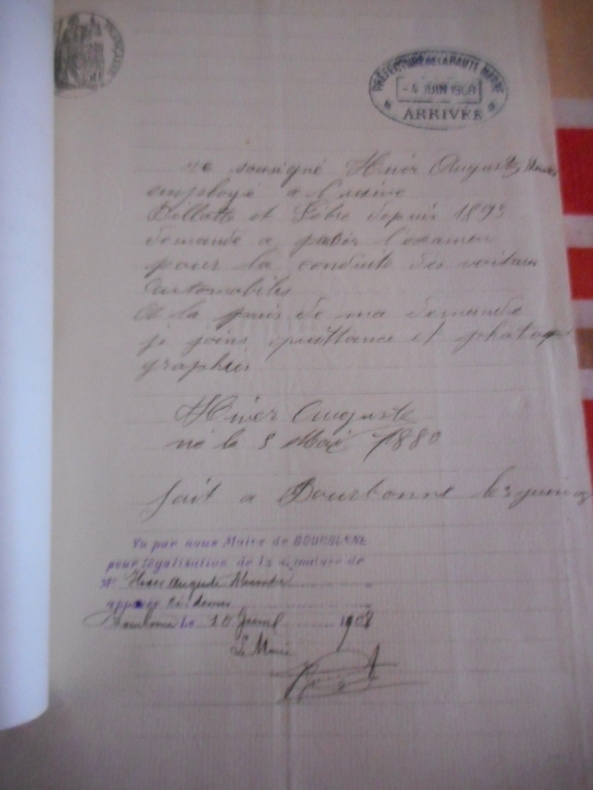 PRÉFECTURE DE LA HAUTE MARNE
- 4 JUIN 1908
ARRIVÉE
sousigné Hivér Auguste
employé a l'usine
et depuis 1893
demande a passér l'examen
pour la conduite des voitures
automobiles
a la de ma demande
je joins quittance et photo
graphies
Hivér Auguste
né le 3 Mai 1880
fait a Bourbonne
Vu par nous Maire de BOURBONNE
pour légalisation de la signature de
Mr Hivér Auguste
apposée ci-dessus
Bourbonne le 10 1908
Le Maire